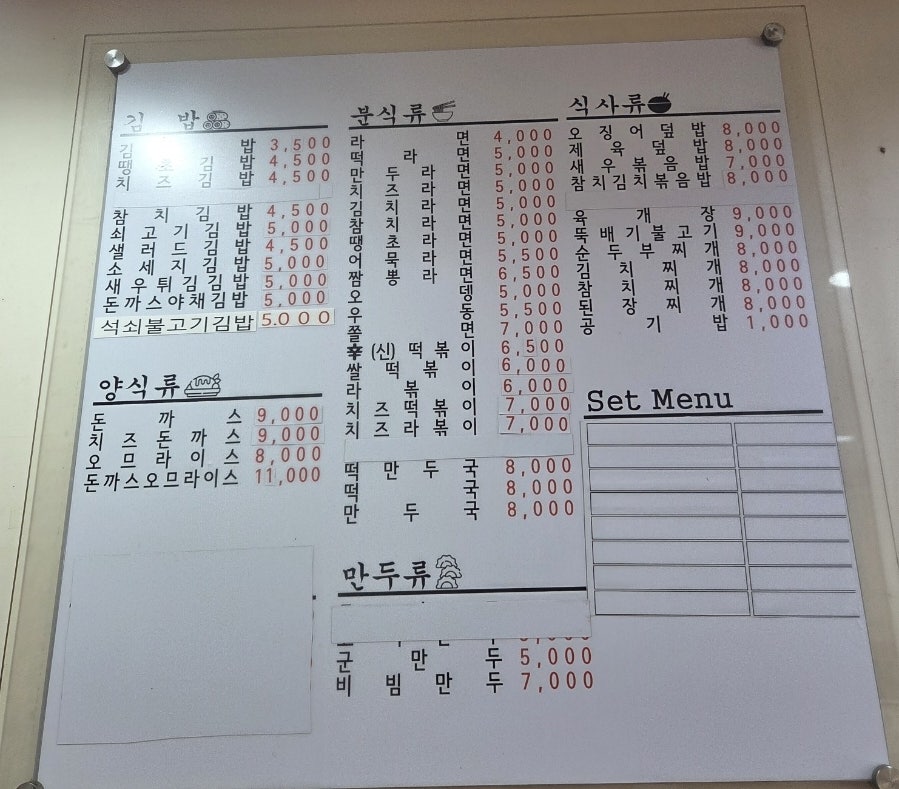 김 밥
김 밥 3,500
땡 초 김 밥 4,500
치 즈 김 밥 4,500
참 치 김 밥 4,500
쇠 고 기 김 밥 5,000
샐 러 드 김 밥 4,500
소 세 지 김 밥 5,000
새 우 튀 김 김 밥 5,000
돈까스야채김밥 5,000
석쇠불고기김밥 5.000
양식류
돈 까 스 9,000
치 즈 돈 까 스 9,000
오 므 라 이 스 8,000
돈까스오므라이스 11,000
분식류
라 면 4,000
떡 라 면 5,000
만 두 라 면 5,000
치 즈 라 면 5,000
김 치 라 면 5,000
참 치 라 면 5,000
땡 초 라 면 5,000
어 묵 라 면 5,500
짬 뽕 라 면 6,500
오 뎅 5,000
우 동 5,500
쫄 면 7,000
辛 (신) 떡 볶 이 6,500
쌀 떡 볶 이 6,000
라 볶 이 6,000
치 즈 떡 볶 이 7,000
치 즈 라 볶 이 7,000
떡 만 두 국 8,000
떡 국 8,000
만 두 국 8,000
만두류
군 만 두 5,000
비 빔 만 두 7,000
식사류
오 징 어 덮 밥 8,000
제 육 덮 밥 8,000
새 우 볶 음 밥 7,000
참치김치볶음밥 8,000
육 개 장 9,000
뚝 배 기 불 고 기 9,000
순 두 부 찌 개 8,000
김 치 찌 개 8,000
참 치 찌 개 8,000
된 장 찌 개 8,000
공 기 밥 1,000
Set Menu